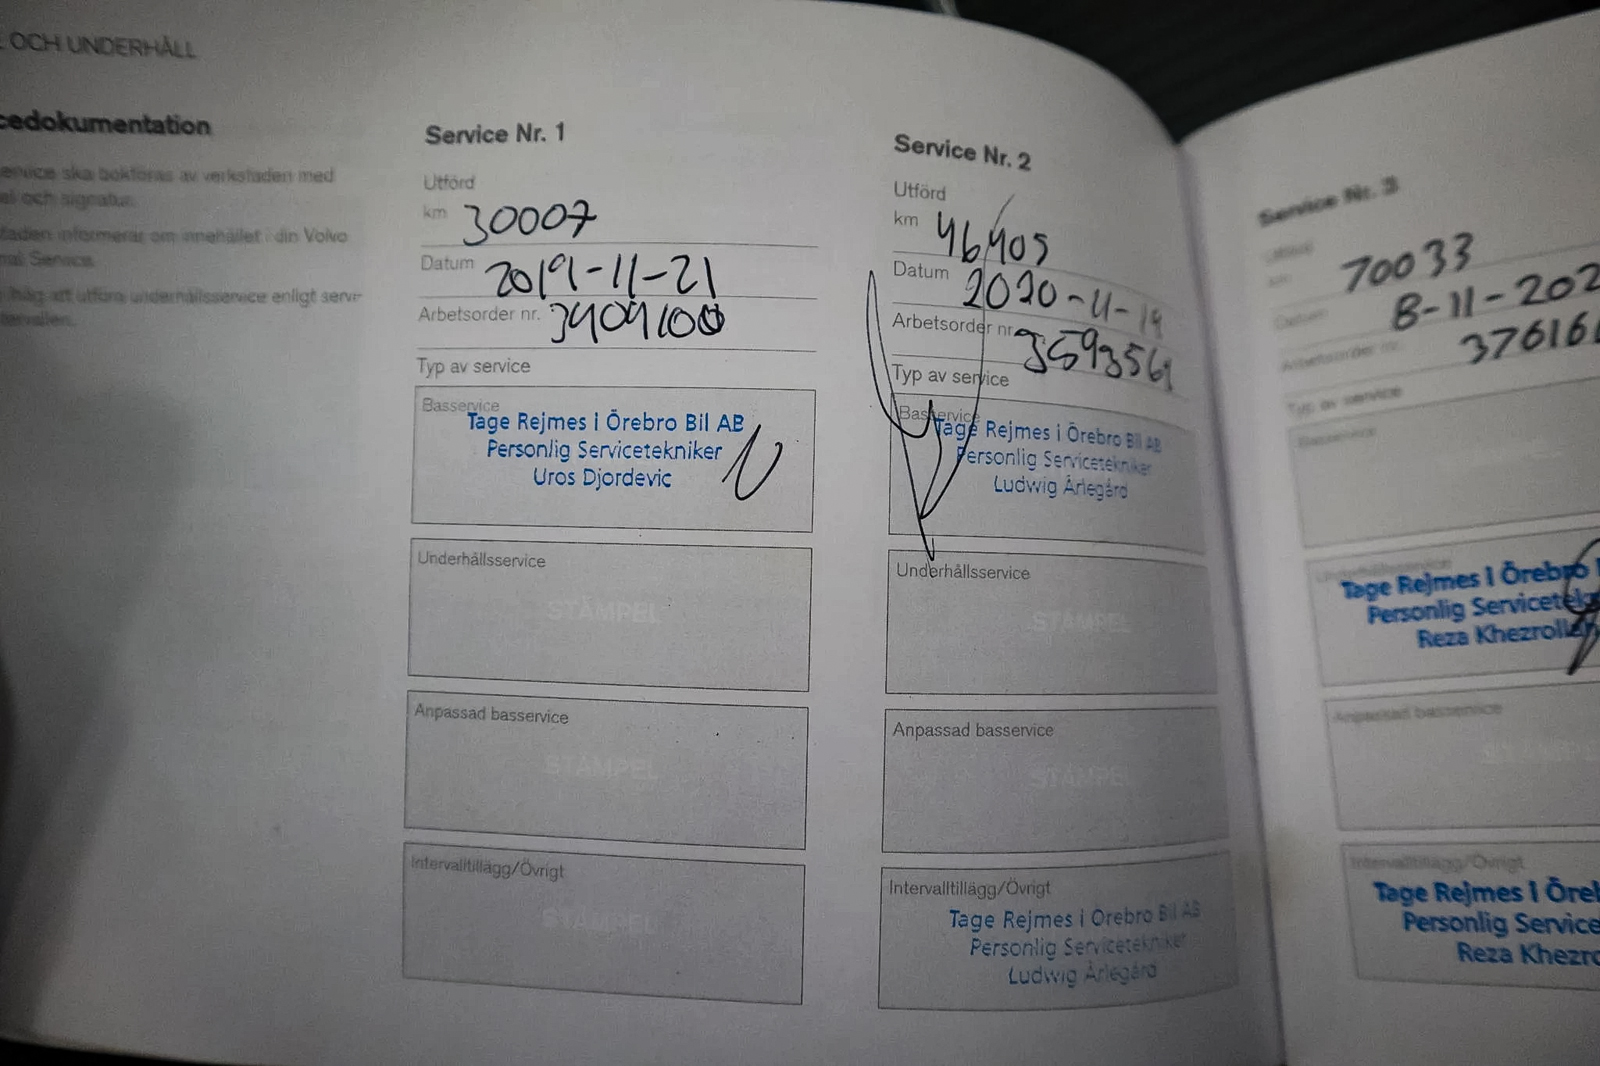 OCH UNDERHÅLL
cedokumentation
ervice ska bokföras av verkstaden med
el och signatur.
staden informerar om innehållet i din Volvo
nal Service.
håg att utföra underhållsservice enligt serv-
tervallen.
Service Nr. 1
Utförd
km 30007
Datum 2019-11-21
Arbetsorder nr. 3404100
Typ av service
Basservice
Tage Rejmes i Örebro Bil AB
Personlig Servicetekniker
Uros Djordevic
Underhållsservice
STÄMPEL
Anpassad basservice
STÄMPEL
Intervalltillägg/Övrigt
STÄMPEL
Service Nr. 2
Utförd
km 46405
Datum 2020-11-19
Arbetsorder nr. 3593561
Typ av service
Basservice
Tage Rejmes i Örebro Bil AB
Personlig Servicetekniker
Ludwig Ärlegård
Underhållsservice
STÄMPEL
Anpassad basservice
STÄMPEL
Intervalltillägg/Övrigt
Tage Rejmes i Örebro Bil AB
Personlig Servicetekniker
Ludwig Ärlegård
Service Nr. 3
Utförd
km 70033
Datum 8-11-202
Arbetsorder nr. 376161
Typ av service
Basservice
Underhållsservice
Tage Rejmes i Örebro
Personlig Servicetek
Reza Khezroll
Anpassad basservice
STÄMPEL
Intervalltillägg/Övrigt
Tage Rejmes i Öre
Personlig Service
Reza Khezro